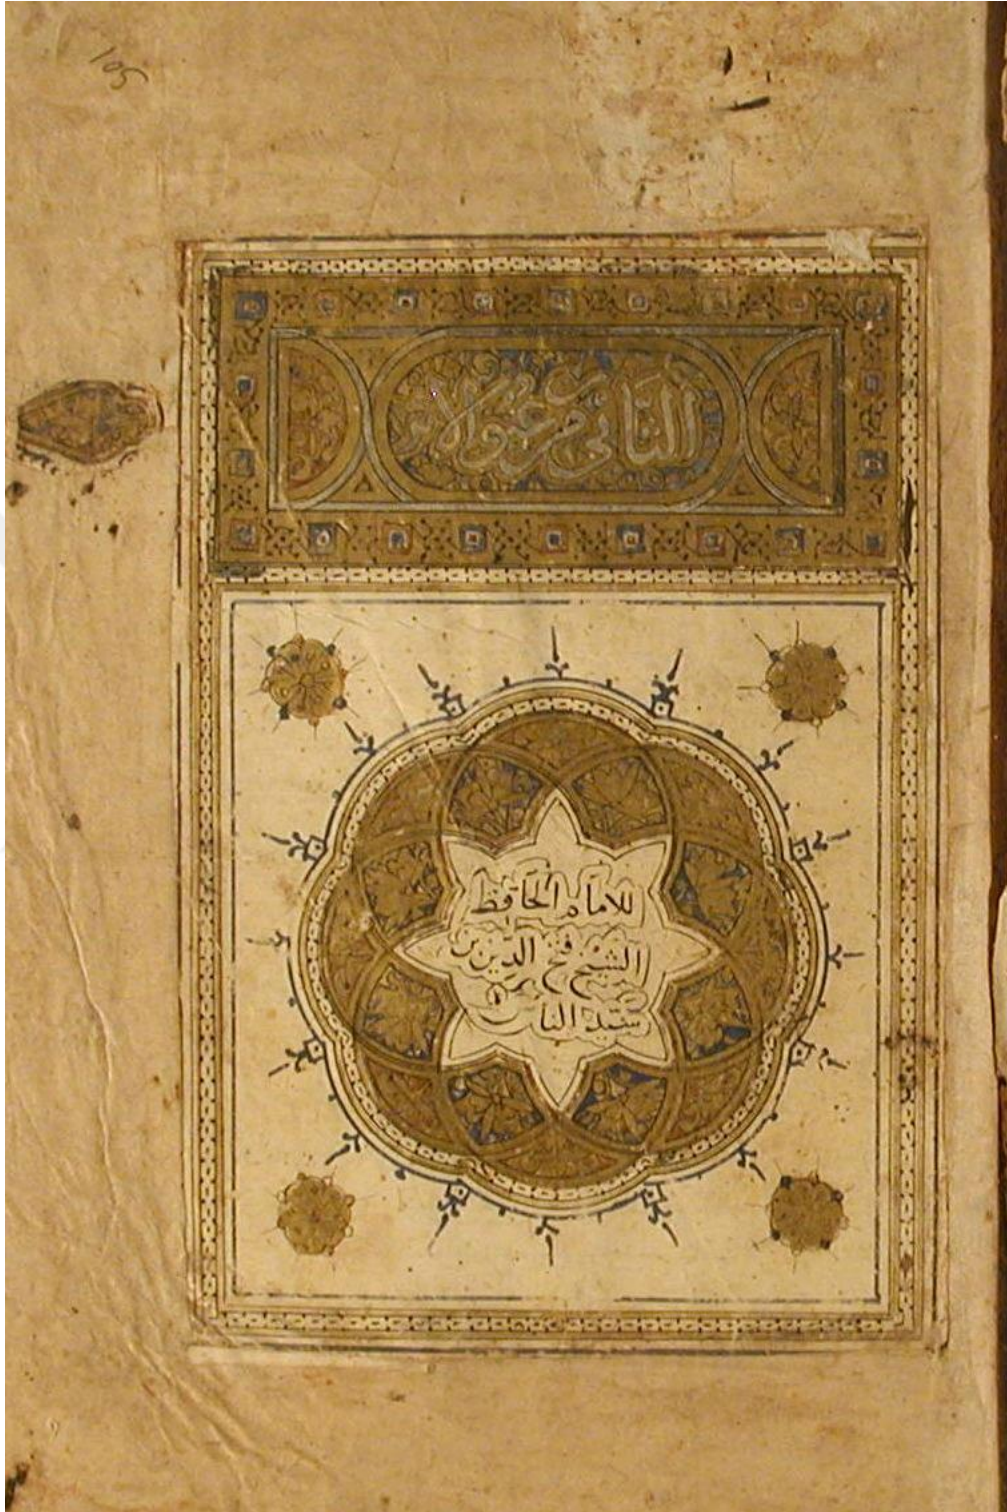 105
الثاني من عيون الأثر
للامام الحافظ
الشيخ فتح الدين بن
سيد الناس